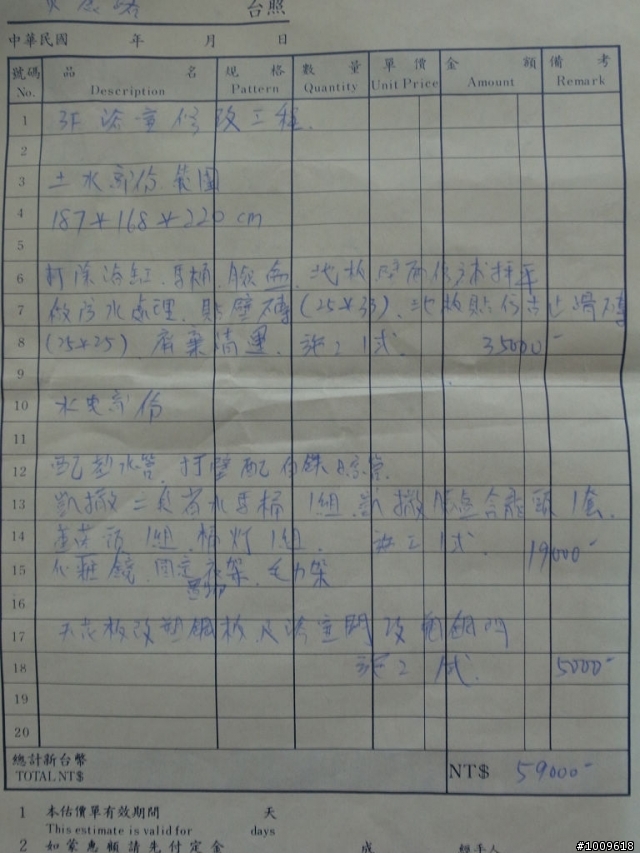 台照
中華民國 年 月 日
號碼 品 名 規 格 數 量 單 價 金 額 備 考
No. Description Pattern Quantity Unit Price Amount Remark
1 3F 浴室修改工程.
2
3 土水部份 範圍
4 187*168*220 cm
5
6 打除浴缸.馬桶.臉盆.地板壁面 打平
7 做防水處理.貼壁磚(25*33).地板貼 止滑磚
8 (25*25) 廢棄清運. 施工1式. 35000-
9
10 水電部份
11
12 配塑水管.打壁配 管.
13 凱撒二段省水馬桶1組.凱撒臉盆含龍頭1套.
14 蓮蓬頭1組.桶灯1組. 施工1式 19000-
15 化粧鏡.固定 架.毛巾架
16
17 天花板改塑鋼板及浴室門改塑鋼門
18 施工1式. 5000-
19
20
總計新台幣
TOTAL NT$ NT$ 59000-
1 本估價單有效期間 天
This estimate is valid for days
2 如蒙惠顧請先付定金 成 經手人
#1009618